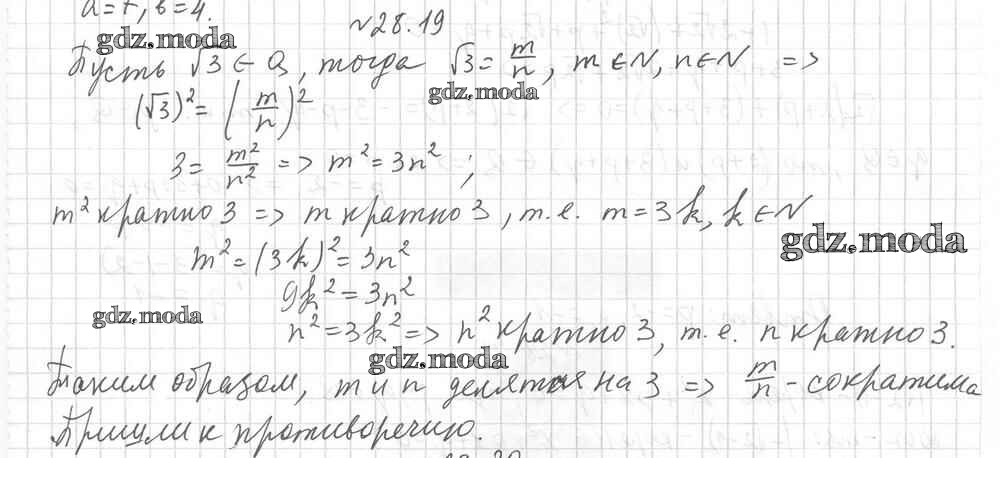 a=7, b=4.
№28.19
gdz.moda
Пусть √3 ∈ Q, тогда √3 = m/n, m ∈ N, n ∈ N =>
gdz.moda
(√3)² = (m/n)²
3 = m²/n² => m² = 3n² ;
m² кратно 3 => m кратно 3, т.е. m = 3k, k ∈ N
gdz.moda
m² = (3k)² = 3n²
9k² = 3n²
gdz.moda
n² = 3k² => n² кратно 3, т.е. n кратно 3.
gdz.moda
Таким образом, m и n делятся на 3 => m/n - сократима
Пришли к противоречию.